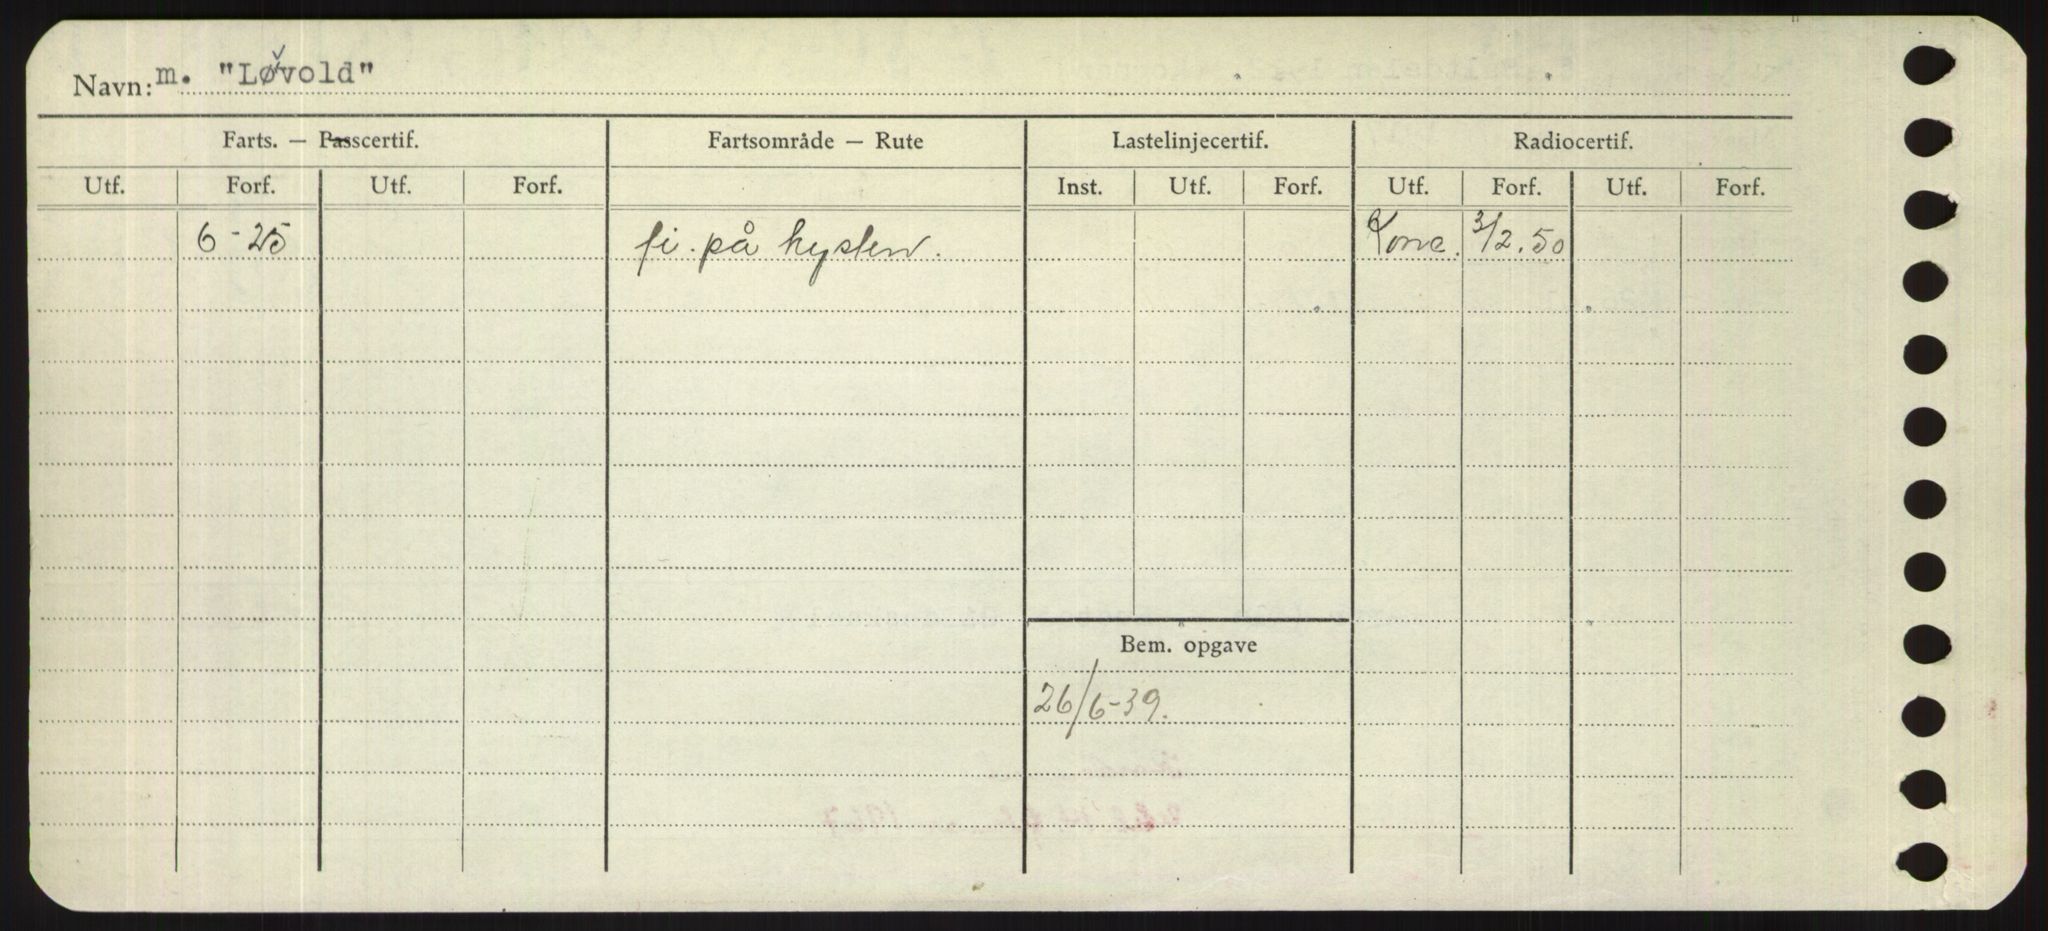 Navn: m. "Løvold"
Farts. — Passcertif. Fartsområde — Rute Lastelinjecertif. Radiocertif.
Utf. Forf. Utf. Forf. Inst. Utf. Forf. Utf. Forf. Utf. Forf.
6-25 fi. på kysten. Konc. 3/2.50
Bem. opgave
26/6-39.